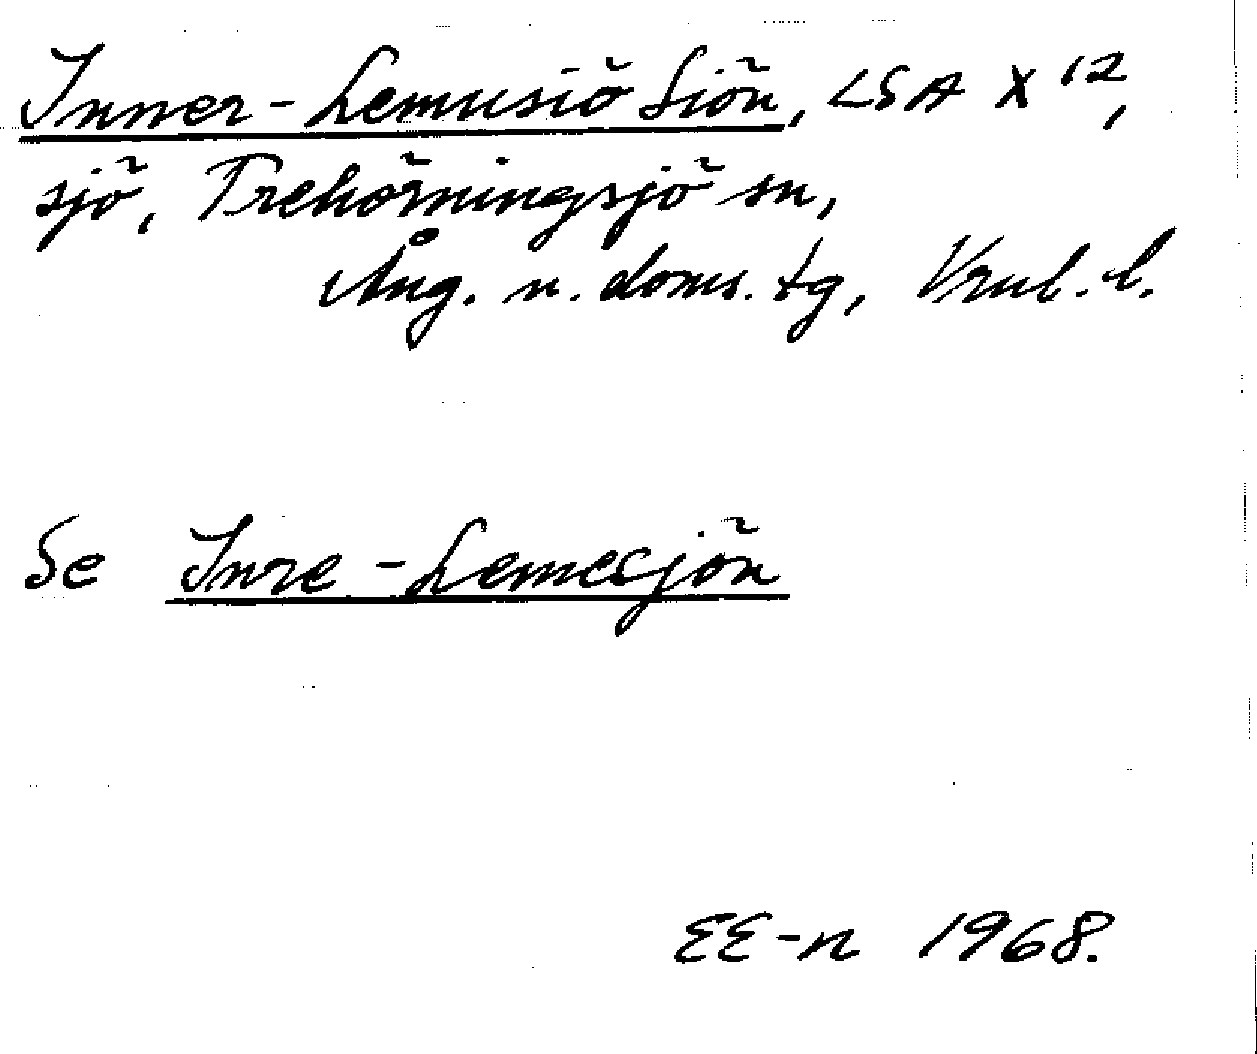 Inner-Lemusiö Siön, LSA X 12,
sjö, Trehörningsjö sn,
Ång. n. doms. tg, Vnrl. l.
Se Inre-Lemesjön
EE-n 1968.